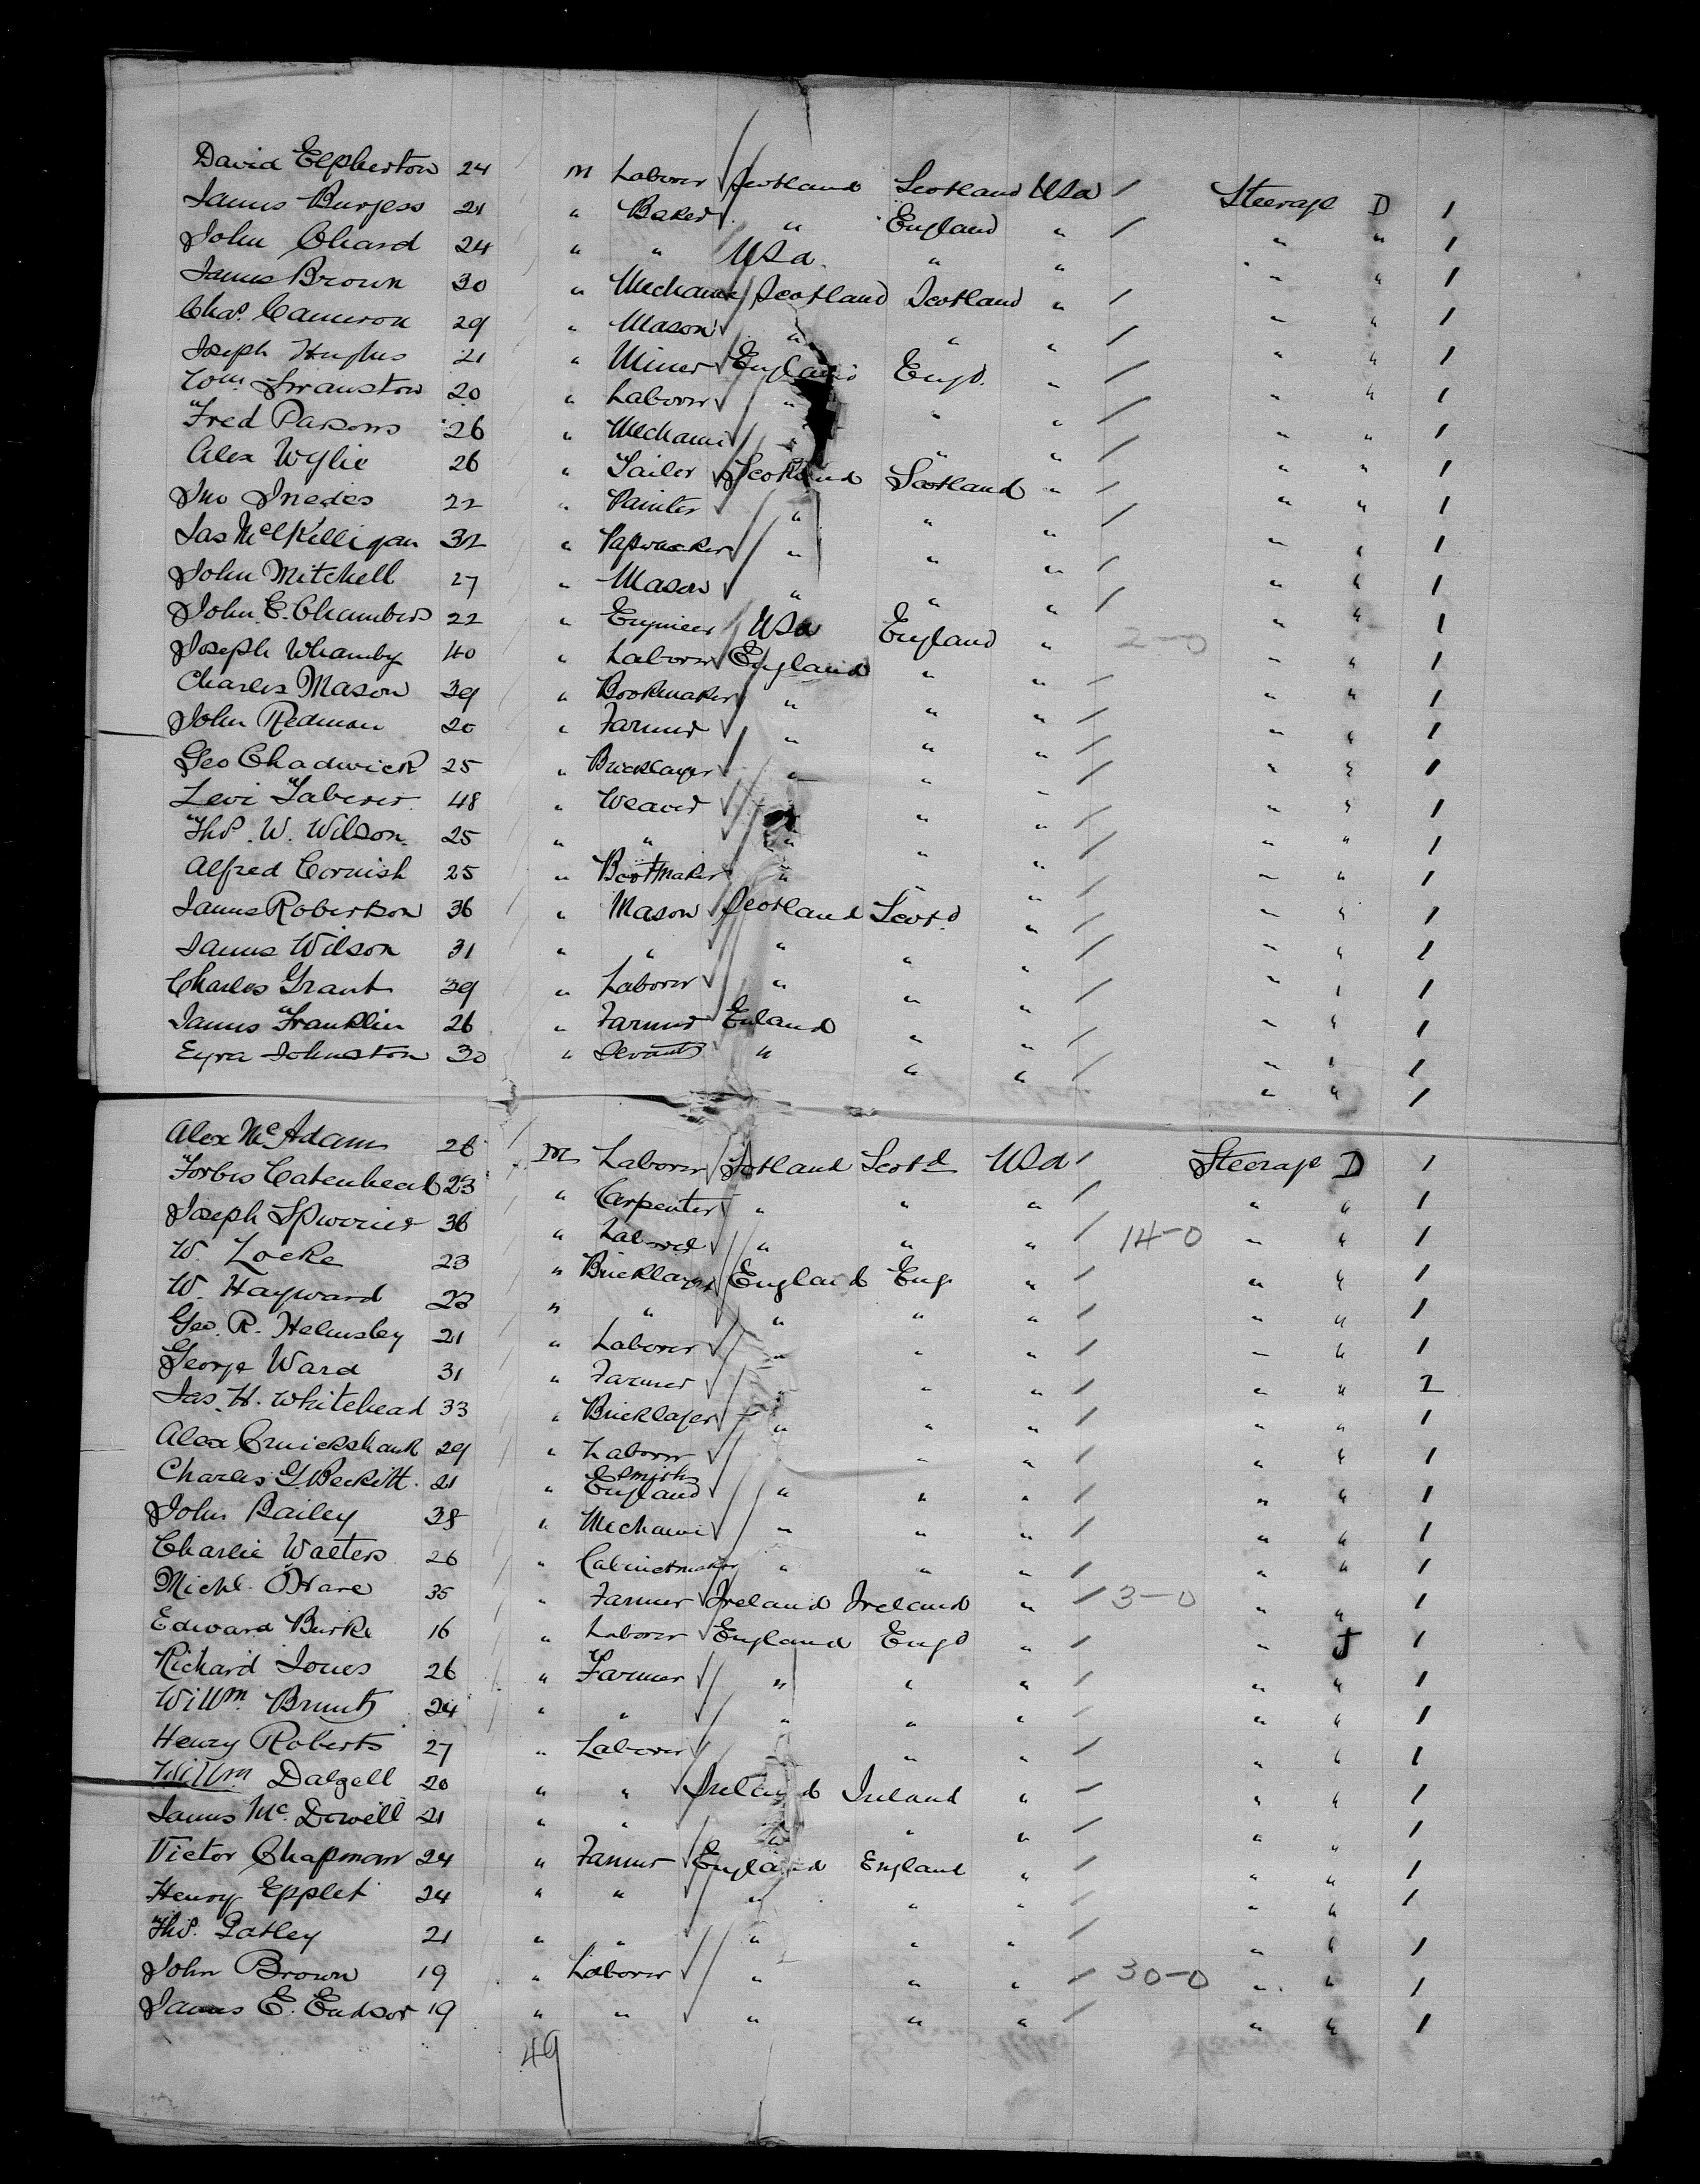 David Elpherton 24 m Laborer Scotland Scotland USa / Steerage D 1
James Burgess 21 " Baker " England " / " " 1
John Chard 24 " " USa " " " " 1
James Brown 30 " Mechanic Scotland Scotland " / " " 1
Chas. Cameron 29 " Mason " " " / " " 1
Joseph Hughes 21 " Miner England Engd. " / " " 1
Wm Swanston 20 " Laborer " " " / " " 1
Fred Parsons 26 " Mechanic " " " / " " 1
Alex Wylie 26 " Tailor Scotland Scotland " / " " 1
Jno 22 " Painter " " " / " " 1
Jas McKilligan 32 " " " " / " " 1
John Mitchell 27 " Mason " " " / " " 1
John E. Chambers 22 " Engineer USa England " 2-0 " " 1
Joseph Whamby 40 " Laborer England " " / " " 1
Charles Mason 39 " Bookmaker " " " / " " 1
John Redman 20 " Farmer " " " / " " 1
Geo Chadwick 25 " Bricklayer " " " / " " 1
Levi Taberer 48 " Weaver " " " / " " 1
Thos. W. Wilson 25 " " " " " " " 1
Alfred Cornish 25 " Bootmaker " " " / " " 1
James Robertson 36 " Mason Scotland Scotd. " / " " 1
James Wilson 31 " " " " " / " " 1
Charles Grant 39 " Laborer " " " / " " 1
James Franklin 26 " Farmer Enland " " / " " 1
Eyra Johnston 30 " Servant " " " / " " 1
Alex McAdam 26 m Laborer Scotland Scotd USa / Steerage D 1
Forbes Catenhead 23 " Carpenter " " " / " " 1
Joseph Spurrier 36 " Laborer " " " / 14-0 " " 1
W. Locke 23 " Bricklayer England Eng. " / " " 1
W. Hayward 23 " " " " " / " " 1
Geo. R. Helmsley 21 " Laborer " " " / " " 1
George Ward 31 " Farmer " " " / " " 1
Jas. H. Whitehead 33 " Bricklayer " " " / " " 1
Alex Cruickshank 29 " Laborer " " / " " 1
Charles G. Beckitt 21 " Smith England " " " / " " 1
John Bailey 38 " Mechanic " " " / " " 1
Charlie Walters 26 " Cabinetmaker " " " / " " 1
Michl. O'Hare 35 " Farmer Ireland Ireland " / 3-0 " " 1
Edward Burke 16 " Laborer England Engd " / " J 1
Richard Jones 26 " Farmer " " " / " " 1
Willm. Brunt 24 " " " " " / " " 1
Henry Roberts 27 " Laborer " " / " " 1
Willm Dalzell 20 " " Ireland Ireland " / " " 1
James McDowell 21 " " " " " / " " 1
Victor Chapman 24 " Farmer England England " / " " 1
Henry Epplet 24 " " " " " / " " 1
Thos. Gatley 21 " " " " " / " " 1
John Brown 19 " Laborer " " " / 30-0 " " 1
James E. Endsor 19 " " " " " / " " 1
49